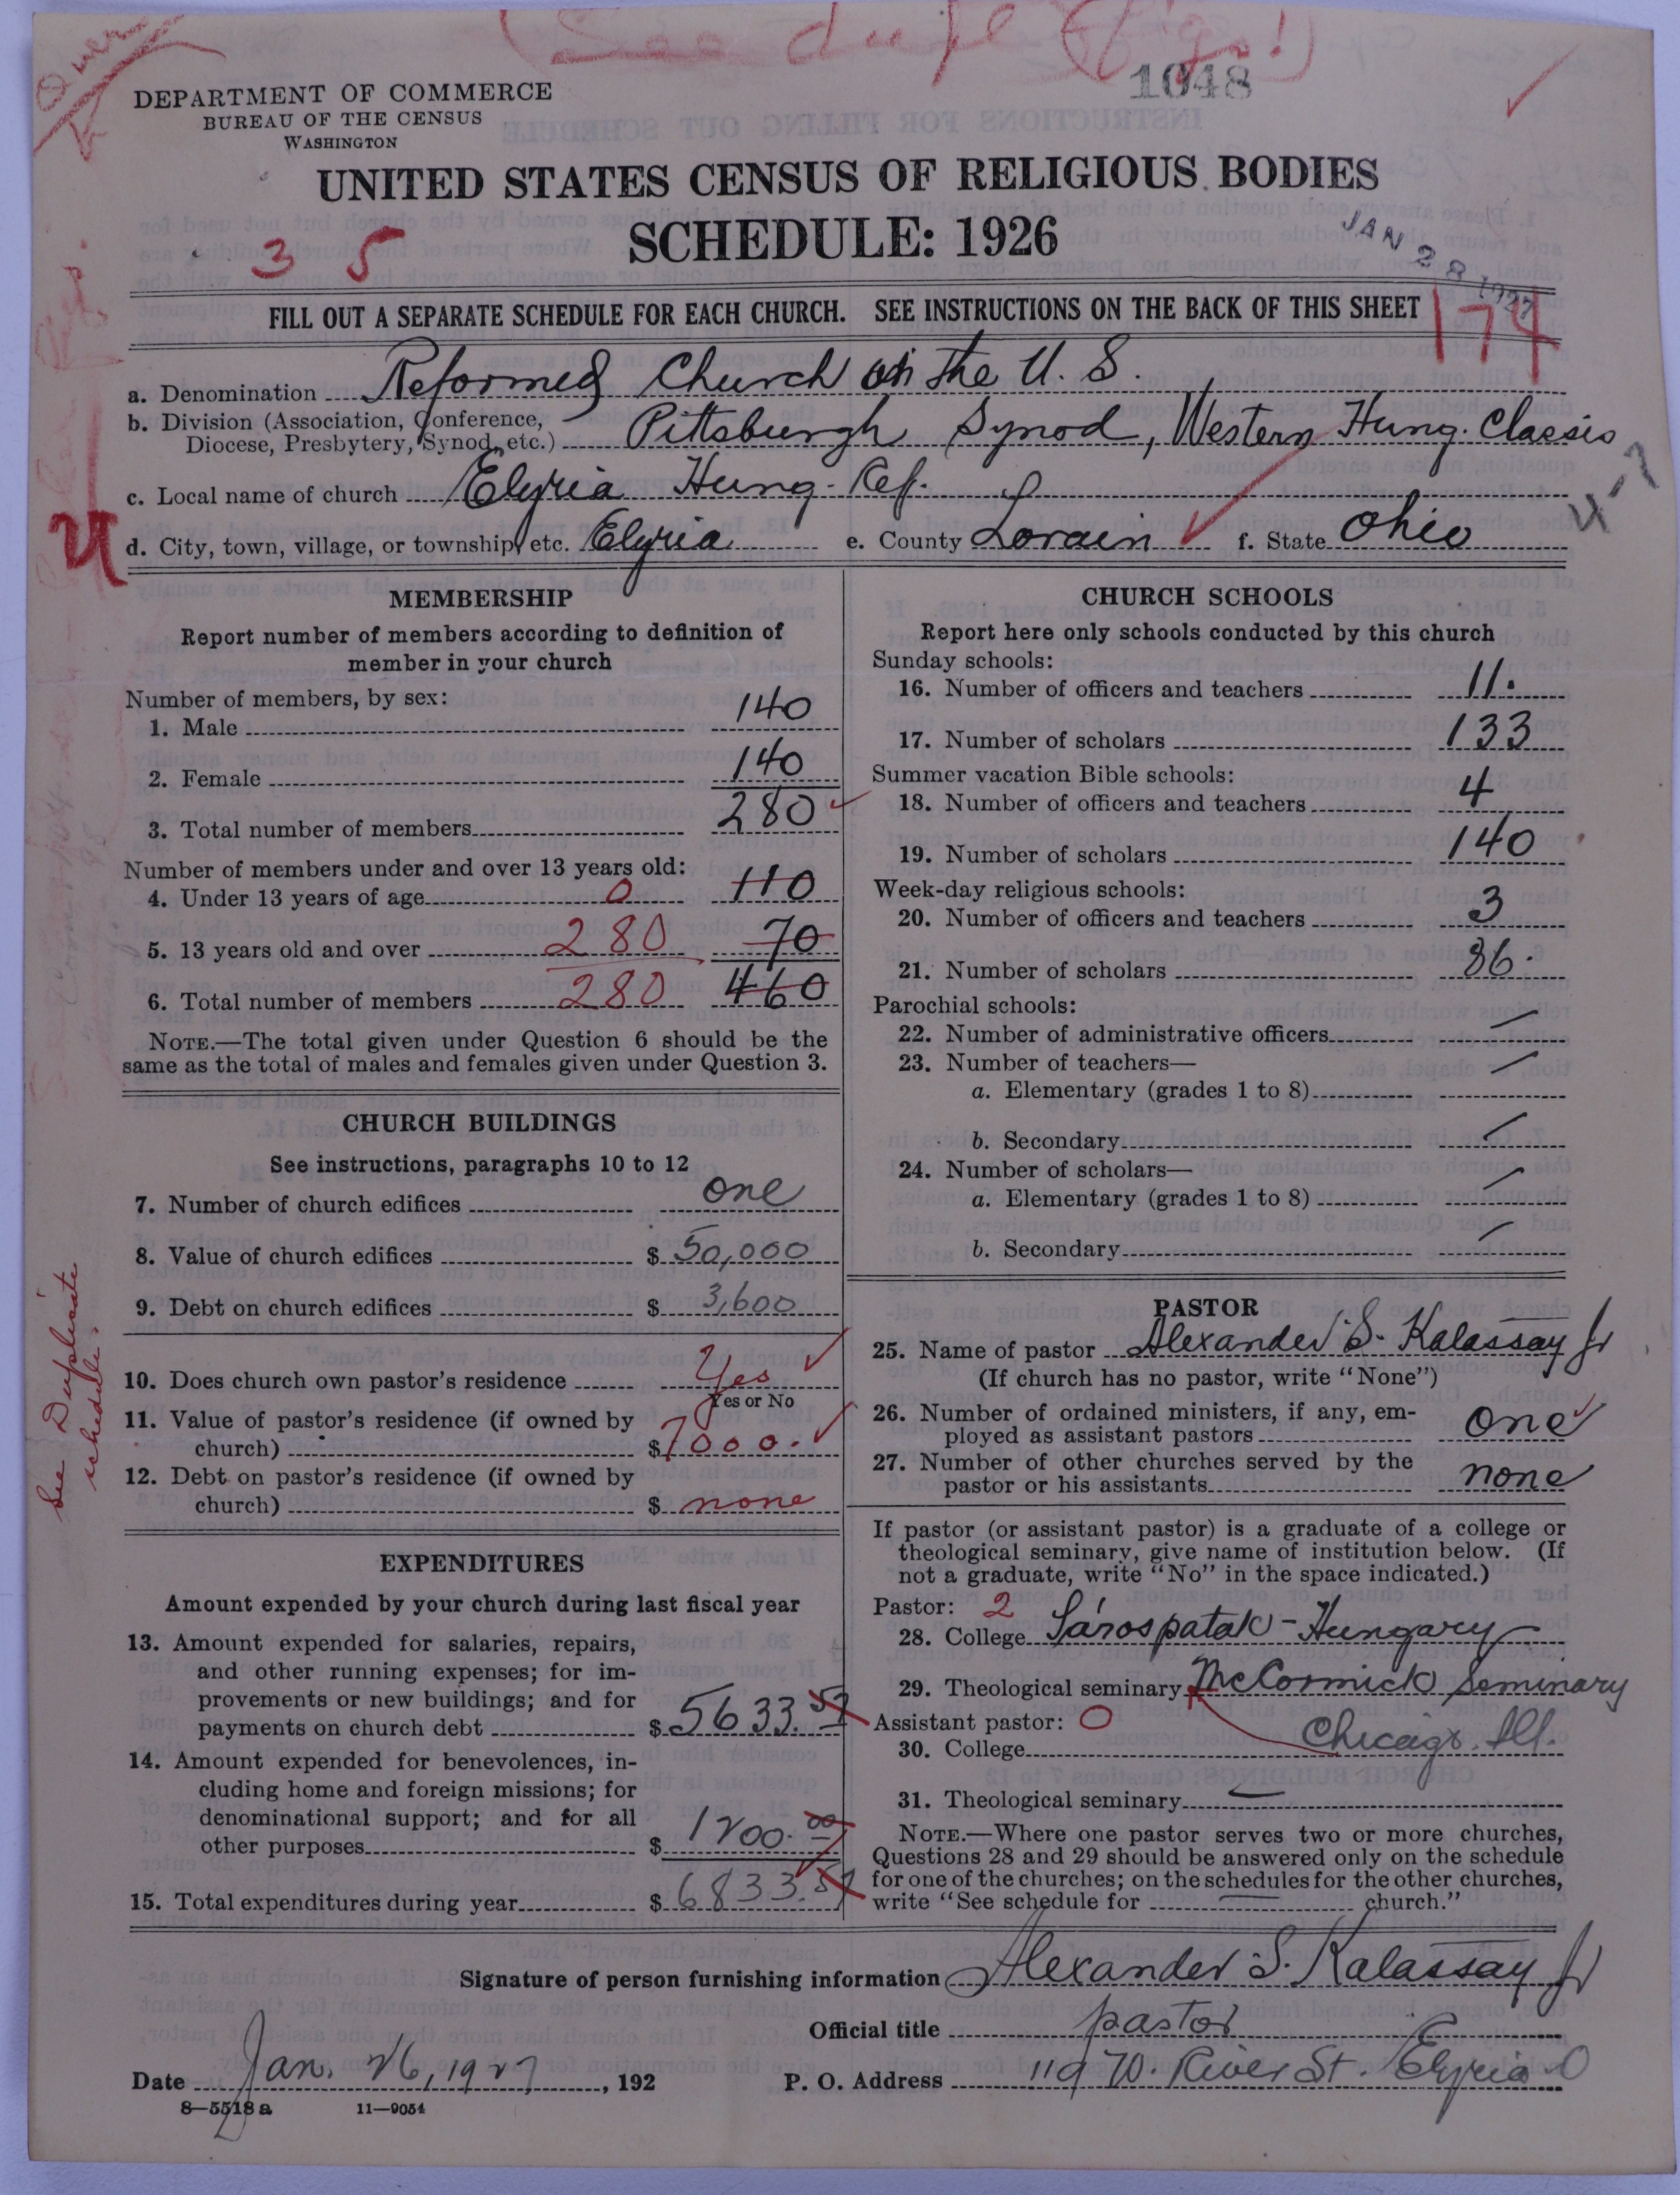 1048
DEPARTMENT OF COMMERCE
BUREAU OF THE CENSUS
WASHINGTON
UNITED STATES CENSUS OF RELIGIOUS BODIES
SCHEDULE: 1926
JAN 28 1927
3 5
FILL OUT A SEPARATE SCHEDULE FOR EACH CHURCH. SEE INSTRUCTIONS ON THE BACK OF THIS SHEET
174
a. Denomination Reformed Church in the U. S.
b. Division (Association, Conference,
Diocese, Presbytery, Synod, etc.) Pittsburgh Synod, Western Hung. Classis
c. Local name of church Elyria Hung. Ref.
d. City, town, village, or township, etc. Elyria e. County Lorain f. State Ohio
MEMBERSHIP
Report number of members according to definition of
member in your church
Number of members, by sex:
1. Male 140
2. Female 140
3. Total number of members 280
Number of members under and over 13 years old:
4. Under 13 years of age 0 110
5. 13 years old and over 280 70
6. Total number of members 280 460
NOTE.—The total given under Question 6 should be the
same as the total of males and females given under Question 3.
CHURCH BUILDINGS
See instructions, paragraphs 10 to 12
7. Number of church edifices one
8. Value of church edifices $ 50,000
9. Debt on church edifices $ 3,600
See Duplicate
schedule.
10. Does church own pastor's residence Yes
Yes or No
11. Value of pastor's residence (if owned by
church) $ 7000.
12. Debt on pastor's residence (if owned by
church) $ none
EXPENDITURES
Amount expended by your church during last fiscal year
13. Amount expended for salaries, repairs,
and other running expenses; for im-
provements or new buildings; and for
payments on church debt $ 5633.57
14. Amount expended for benevolences, in-
cluding home and foreign missions; for
denominational support; and for all
other purposes $ 1200.00
15. Total expenditures during year $ 6833.57
CHURCH SCHOOLS
Report here only schools conducted by this church
Sunday schools:
16. Number of officers and teachers 11.
17. Number of scholars 133
Summer vacation Bible schools:
18. Number of officers and teachers 4
19. Number of scholars 140
Week-day religious schools:
20. Number of officers and teachers 3
21. Number of scholars 86.
Parochial schools:
22. Number of administrative officers —
23. Number of teachers—
a. Elementary (grades 1 to 8) —
b. Secondary —
24. Number of scholars—
a. Elementary (grades 1 to 8) —
b. Secondary —
PASTOR
25. Name of pastor Alexander S. Kalassay Jr
(If church has no pastor, write "None")
26. Number of ordained ministers, if any, em-
ployed as assistant pastors one
27. Number of other churches served by the
pastor or his assistants none
If pastor (or assistant pastor) is a graduate of a college or
theological seminary, give name of institution below. (If
not a graduate, write "No" in the space indicated.)
Pastor: 2
28. College Sárospatak - Hungary
29. Theological seminary McCormick Seminary
Assistant pastor: 0 Chicago. Ill.
30. College
31. Theological seminary —
NOTE.—Where one pastor serves two or more churches,
Questions 28 and 29 should be answered only on the schedule
for one of the churches; on the schedules for the other churches,
write "See schedule for — church."
Signature of person furnishing information Alexander S. Kalassay Jr
Official title pastor
Date Jan. 26, 1927, 192 P. O. Address 119 W. River St. Elyria O
8—5518 a 11—9054